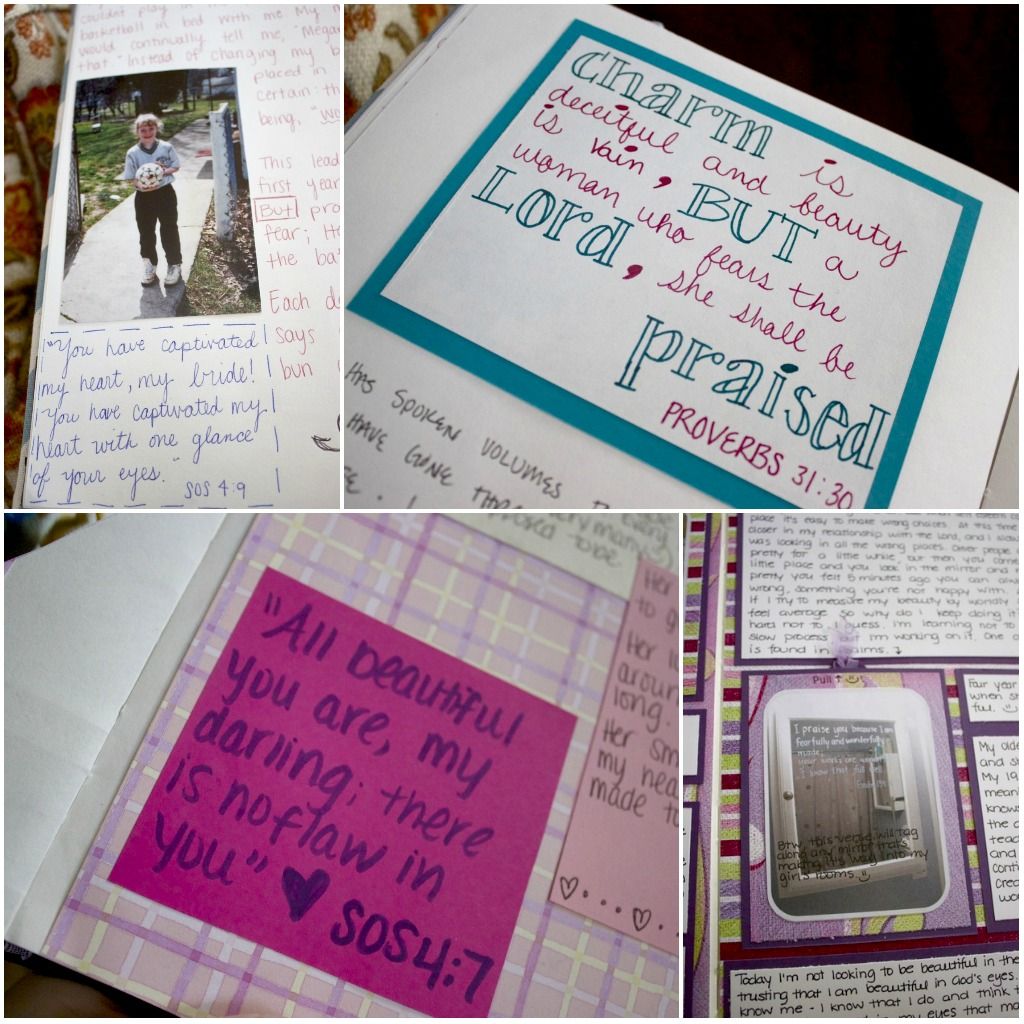 couldn't play in
basketball in bed with me. My m
would continually tell me, "Megan
that." Instead of changing my b
placed in
certain: th
being, "wo
This lead
first year
But pro
fear; He
the ba
Each d
says
bun
"You have captivated
my heart, my bride!
You have captivated my
heart with one glance
of your eyes."
SOS 4:9
Charm is
deceitful and beauty
is vain, BUT a
woman who fears the
Lord, she shall be
praised
PROVERBS 31:30
HAS SPOKEN VOLUMES
HAVE GONE THRO
"All beautiful
you are, my
darling; there
is no flaw in
you"
SOS 4:7
Her
to g
Her
aroun
long.
Her sm
my hea
made to
place it's easy to make wrong choices. At this time
closer in my relationship with the Lord, and I
was looking in all the wrong places. Other people
pretty for a little while, but then you come
little place and you look in the mirror and
pretty you felt 5 minutes ago you can alwa
wrong, something you're not happy with.
If I try to measure my beauty by worldly
feel average. So why do I keep doing it
hard not to I guess. I'm learning not to
slow process but I'm working on it. One o
is found in
Pull
I praise you because I am
fearfully and wonderfully
made;
your works are
I know that full well.
Btw, this verse will tag
along any mirror that's
making it's way into my
girl's rooms.
Four year
when s
ful.
My olde
and s
My 19
mean
knows
the c
teac
and
conti
Crea
wo
Today I'm not looking to be beautiful in the
trusting that I am beautiful in God's eyes.
know me - I know that I do and think t
in my eyes that ma